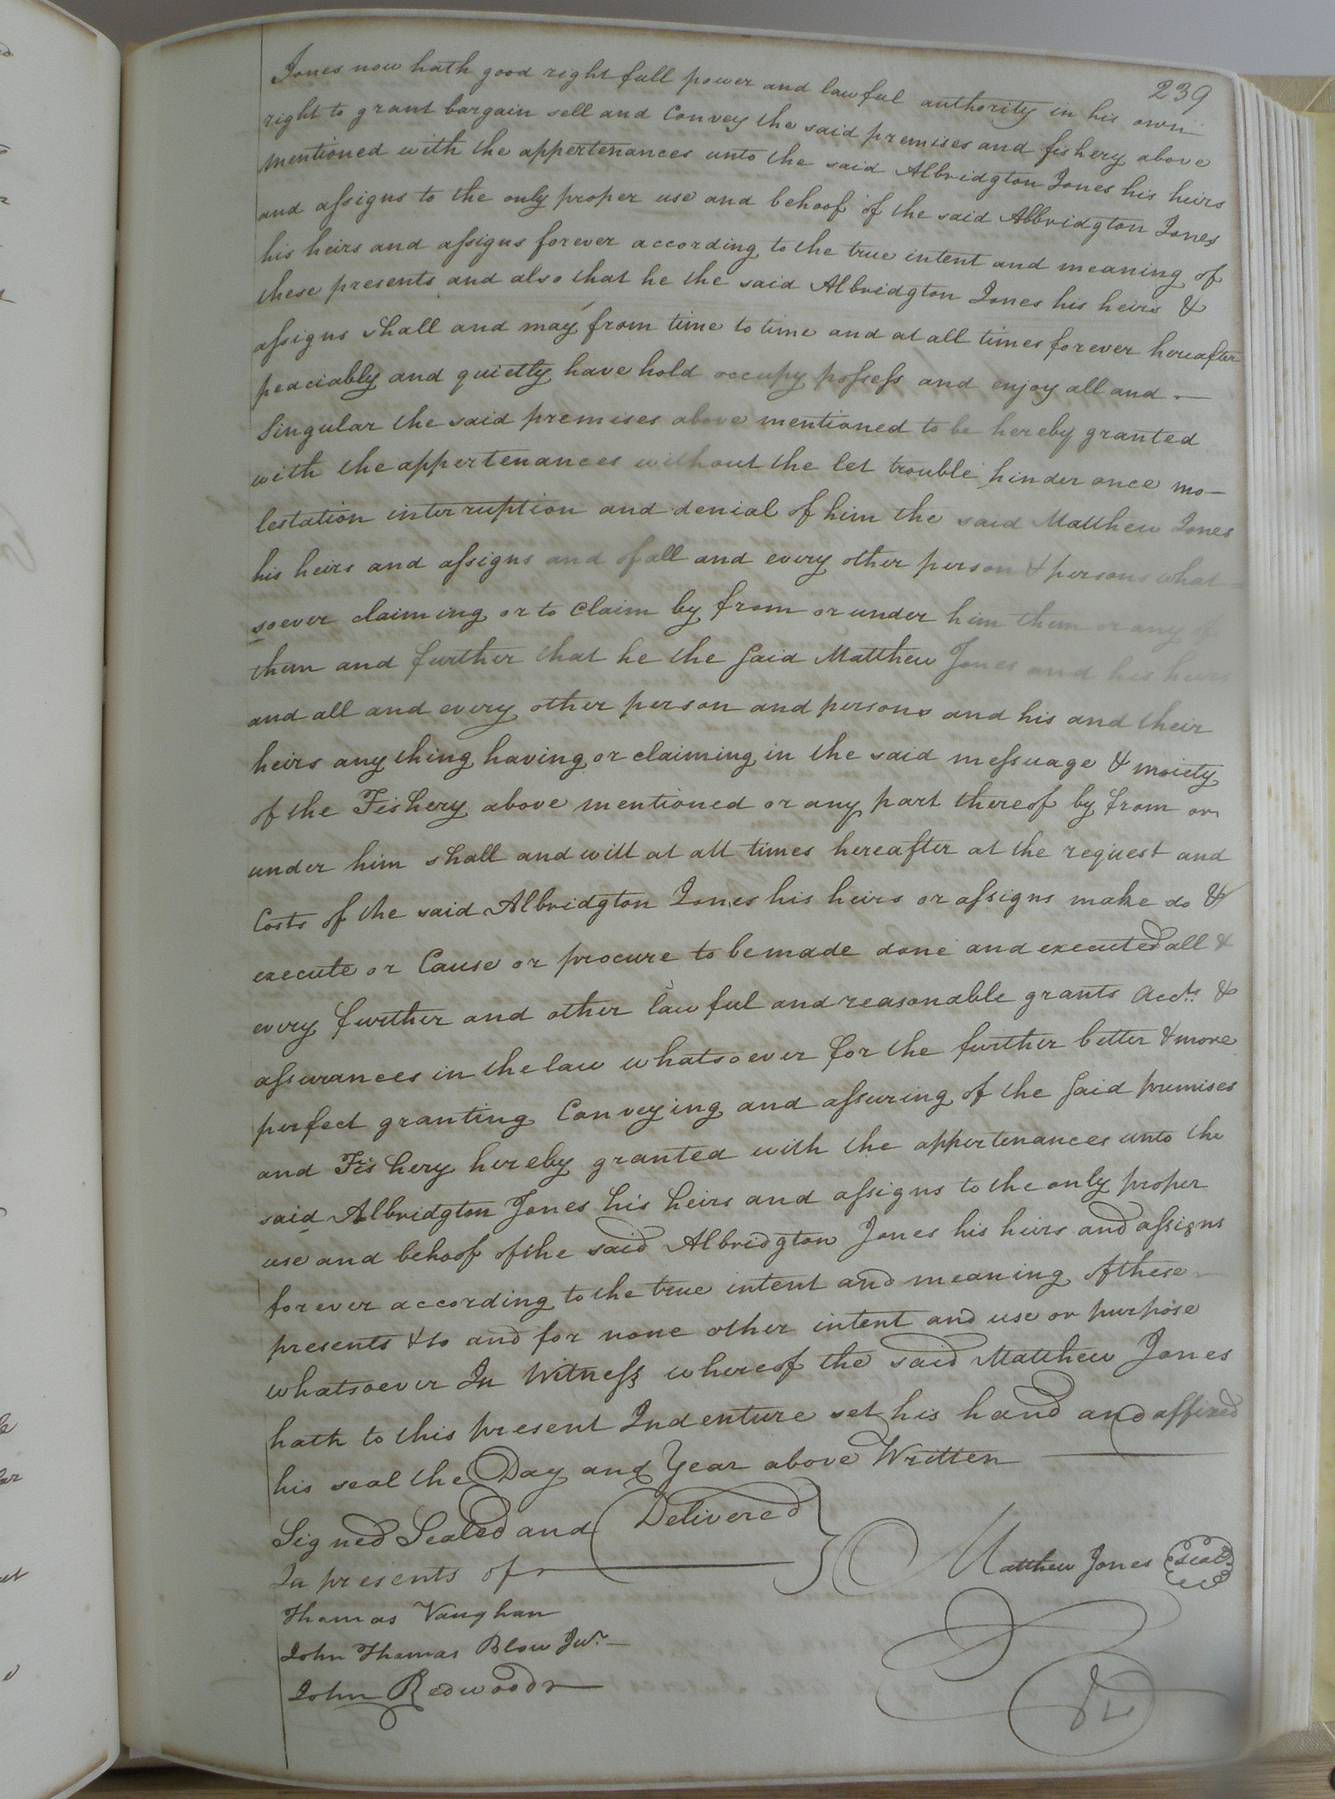 239
Jones now hath good right full power and lawful authority in his own
right to grant bargain sell and Convey the said premises and fishery above
mentioned with the appertenances unto the said Albridgton Jones his heirs
and assigns to the only proper use and behoof of the said Albridgton Jones
his heirs and assigns forever according to the true intent and meaning of
these presents and also that he the said Albridgton Jones his heirs &
assigns shall and may from time to time and at all times forever hereafter
peaciably and quietly have hold occupy possess and enjoy all and —
Singular the said premises above mentioned to be hereby granted
with the appertenances without the let trouble hinderance mo-
lestation interruption and denial of him the said Matthew Jones
his heirs and assigns and of all and every other person & persons what-
soever claiming or to Claim by from or under him them or any of
them and further that he the said Matthew Jones and his heirs
and all and every other person and persons and his and their
heirs any thing having or claiming in the said messuage & moiety
of the Fishery above mentioned or any part thereof by from or
under him shall and will at all times hereafter at the request and
Costs of the said Albridgton Jones his heirs or assigns make do &
execute or Cause or procure to be made done and executed all &
every further and other lawful and reasonable grants &
assurances in the law whatsoever for the further better & more
perfect granting Conveying and assuring of the said premises
and Fishery hereby granted with the appertenances unto the
said Albridgton Jones his heirs and assigns to the only proper
use and behoof of the said Albridgton Jones his heirs and assigns
forever according to the true intent and meaning of these
presents & to and for none other intent and use or purpose
whatsoever In Witness whereof the said Matthew Jones
hath to this present Indenture set his hand and affixed
his seal the Day and Year above Written
Signed Sealed and Delivered
In presents of
Matthew Jones Seal
Thomas Vaughan
John Thomas Blow Junr.
John Redwood